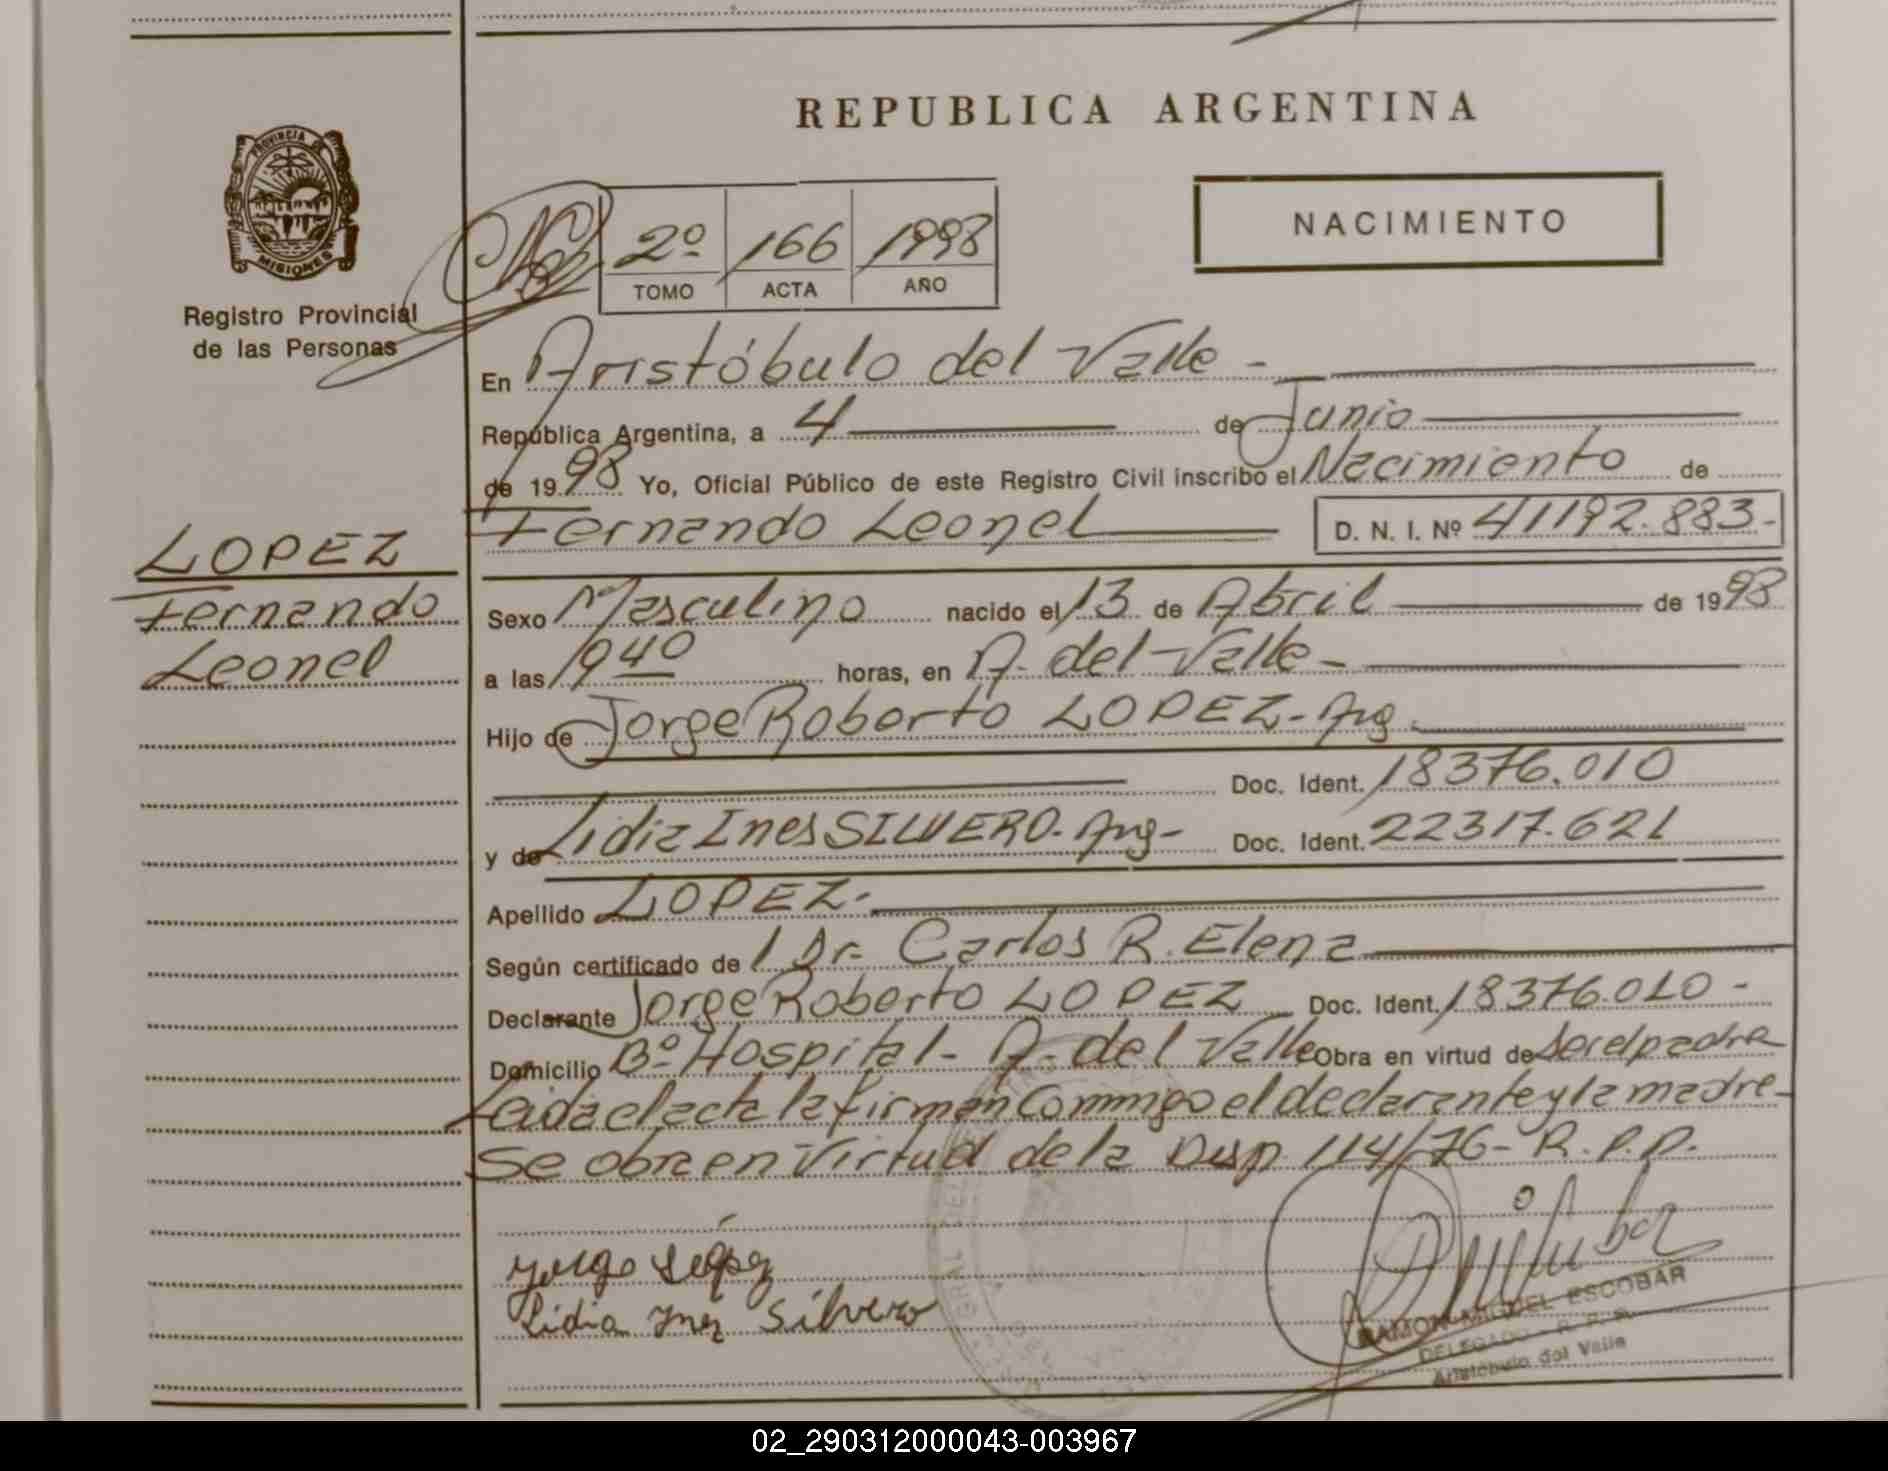 REPUBLICA ARGENTINA
PROVINCIA DE
MISIONES
Registro Provincial
de las Personas
NACIMIENTO
2º 166 1998
TOMO ACTA AÑO
En Aristóbulo del Valle -
República Argentina, a 4 de Junio
de 1998 Yo, Oficial Público de este Registro Civil inscribo el Nacimiento de
Fernando Leonel D. N. I. Nº 41192.883-
LOPEZ
Fernando
Leonel
Sexo Masculino nacido el 13 de Abril de 1998
a las 19 40 horas, en A. del Valle -
Hijo de Jorge Roberto LOPEZ - Arg.
Doc. Ident. 18376.010
y de Lidia Ines SILVERO - Arg - Doc. Ident. 22317.621
Apellido LOPEZ -
Según certificado de l Dr. Carlos R. Elena
Declarante Jorge Roberto LOPEZ Doc. Ident. 18376.010 -
Domicilio Bº Hospital - A. del Valle Obra en virtud de ser el padre
Leida el acta la firman Conmigo el declarante y la madre -
Se obra en Virtud de la Disp 114/76 - R. P. P.
Jorge López
Lidia Inez Silvero
RAMON MIGUEL ESCOBAR
DELEGADO R. P. P.
Aristóbulo del Valle
02_290312000043-003967